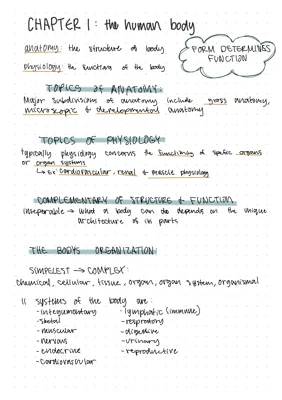 CHAPTER 1: the human body
anatomy: the structure of body
physiology: the functions of the body
FORM DETERMINES
FUNCTION
TOPICS of ANATOMY:
Major subdivisions of anatomy include gross anatomy,
microscopic & developmental anatomy
TOPICS OF PHYSIOLOGY
typically physiology concerns the functioning of specific organs
or organ systems
↳ ex: cardiovascular, renal & muscle physiology
COMPLEMENTARY OF STRUCTURE & FUNCTION
inseperable → what a body can do depends on the unique
architecture of its parts
THE BODYS ORGANIZATION:
SIMPELEST → COMPLEX:
Chemical, cellular, tissue, organ, organ system, organismal
11 systems of the body are:
-integumentary
-lymphatic (immune)
-skeletal
-respiratory
-muscular
-digestive
-nervous
-urinary
-endocrine
-reproductive
-cardiovascular